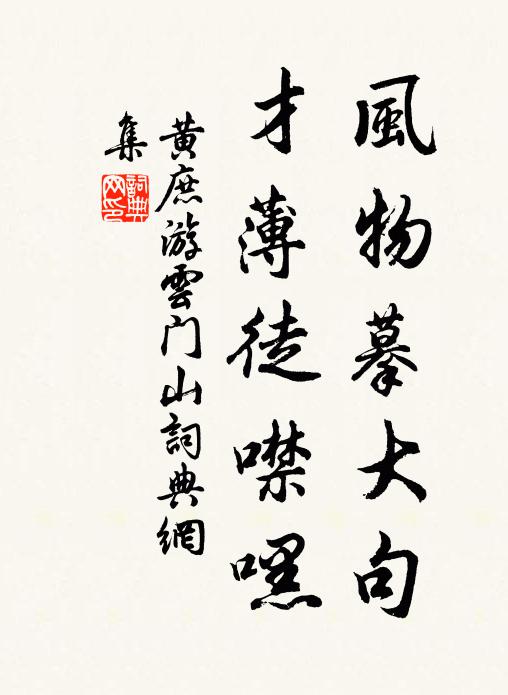 風物摹大句
才薄徒噤嘿
黄庶游雲门山詞典網
集
詞典网印